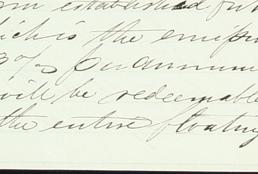 established
is the
3% per annum
will be redeemable
the entire floating